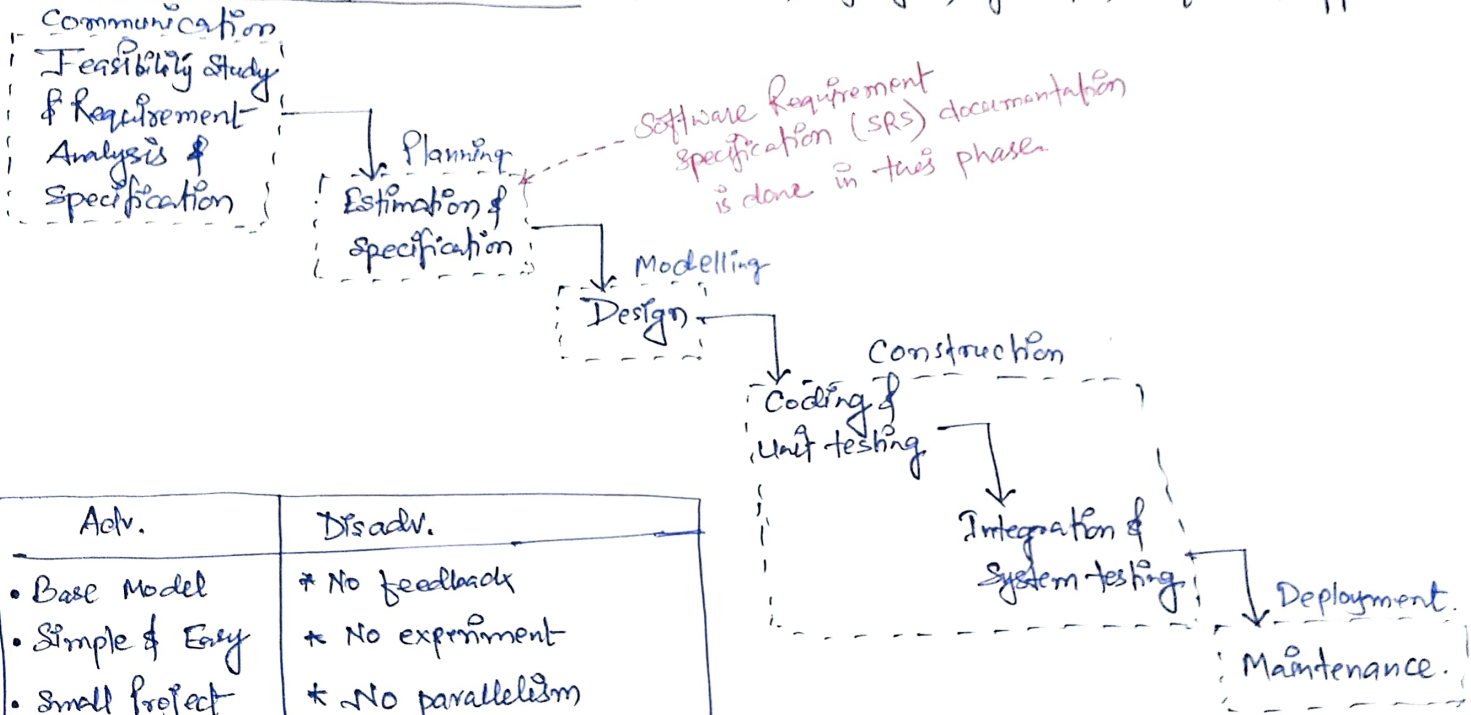 Communication
Feasibility Study
& Requirement
Analysis &
Specification
Planning
Estimation &
Specification
Software Requirement
Specification (SRS) documentation
is done in this phase.
Modelling
Design
Construction
Coding &
Unit testing
Integration &
System testing
Deployment.
Maintenance.
Adv.
Disadv.
• Base Model
* No feedback
• Simple & Easy
* No experiment
• Small Project
* No parallelism